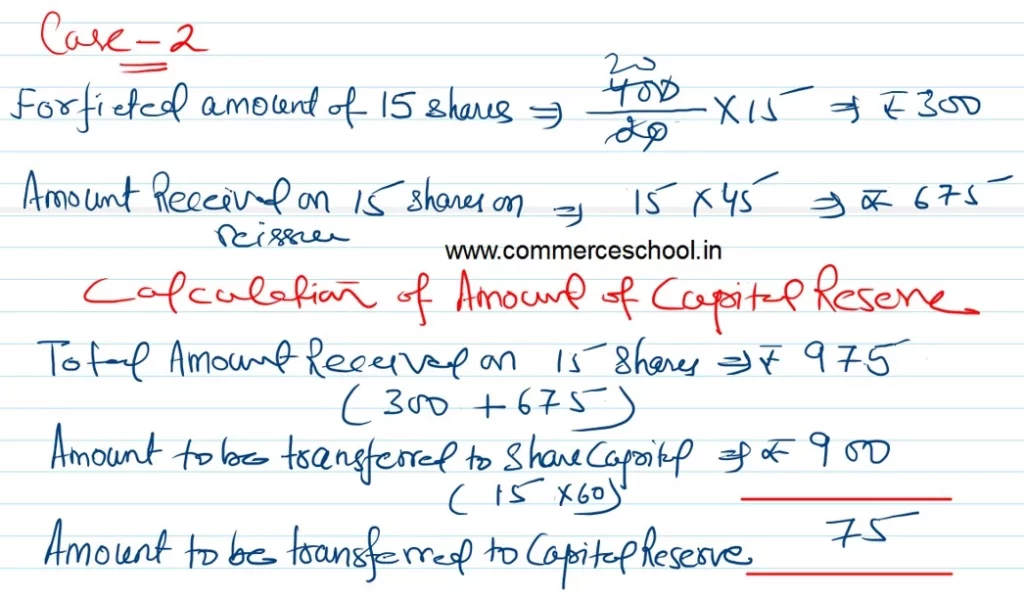 Case - 2
Forfieted amount of 15 shares ⇒ 400/20 × 15 ⇒ ₹ 300
20
Amount Received on 15 shares on reissue ⇒ 15 × 45 ⇒ ₹ 675
www.commerceschool.in
Calculation of Amount of Capital Reserve
Total Amount Received on 15 Shares ⇒ ₹ 975
(300 + 675)
Amount to be transferred to Share Capital ⇒ ₹ 900
(15 × 60)
Amount to be transferred to Capital Reserve 75